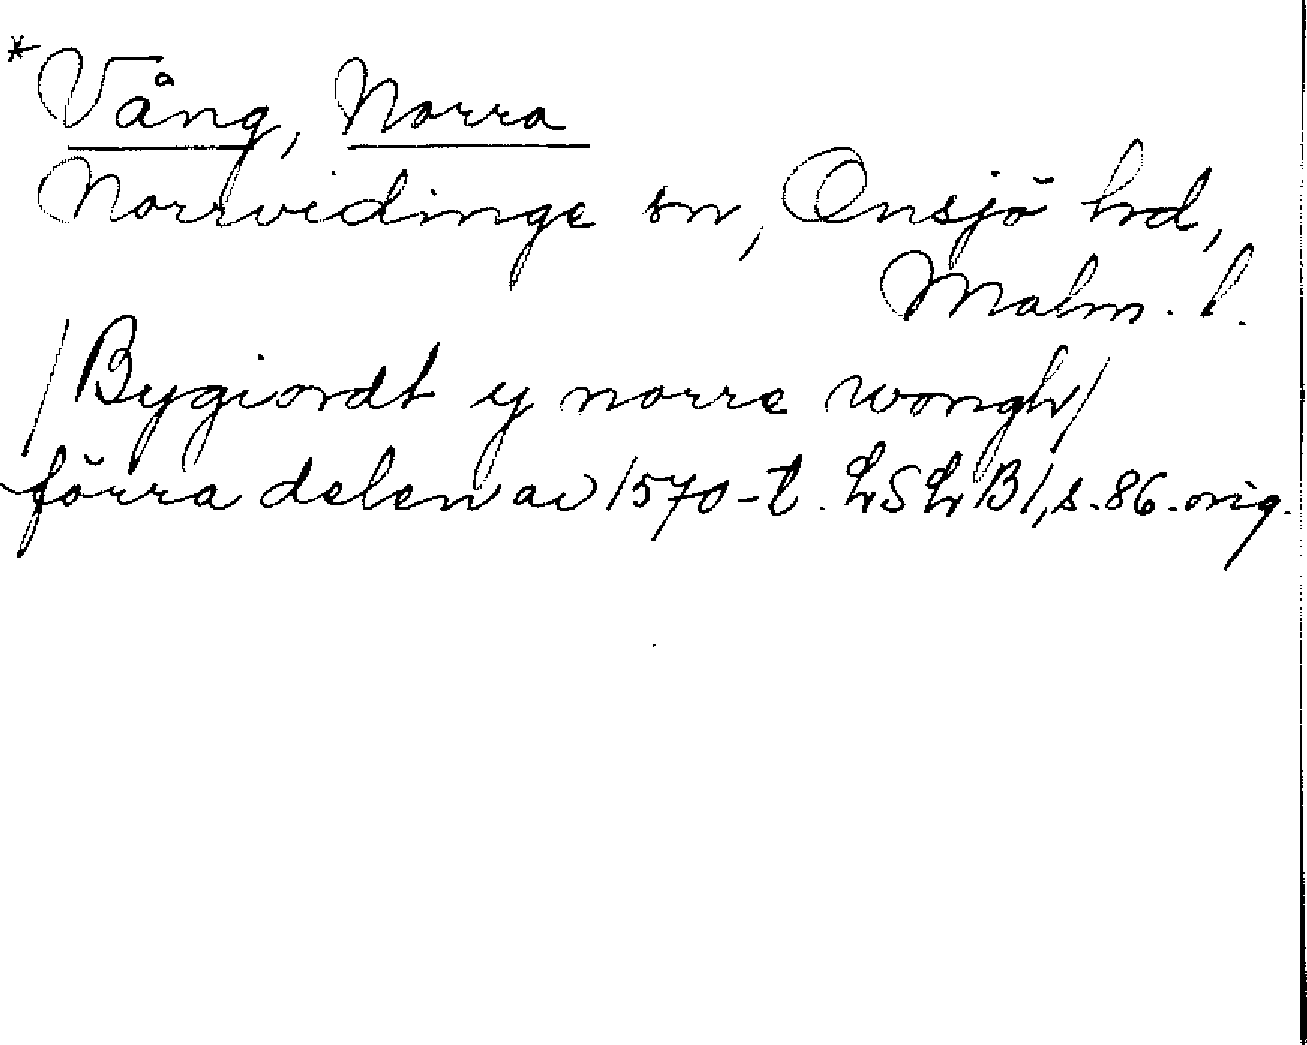 *Vång, Norra
Norrvidinge sn, Onsjö hd,
Malm. l.
/Bygiordt y norre wongh/
förra delen av 1570-t. LSLB1, s. 86. orig.